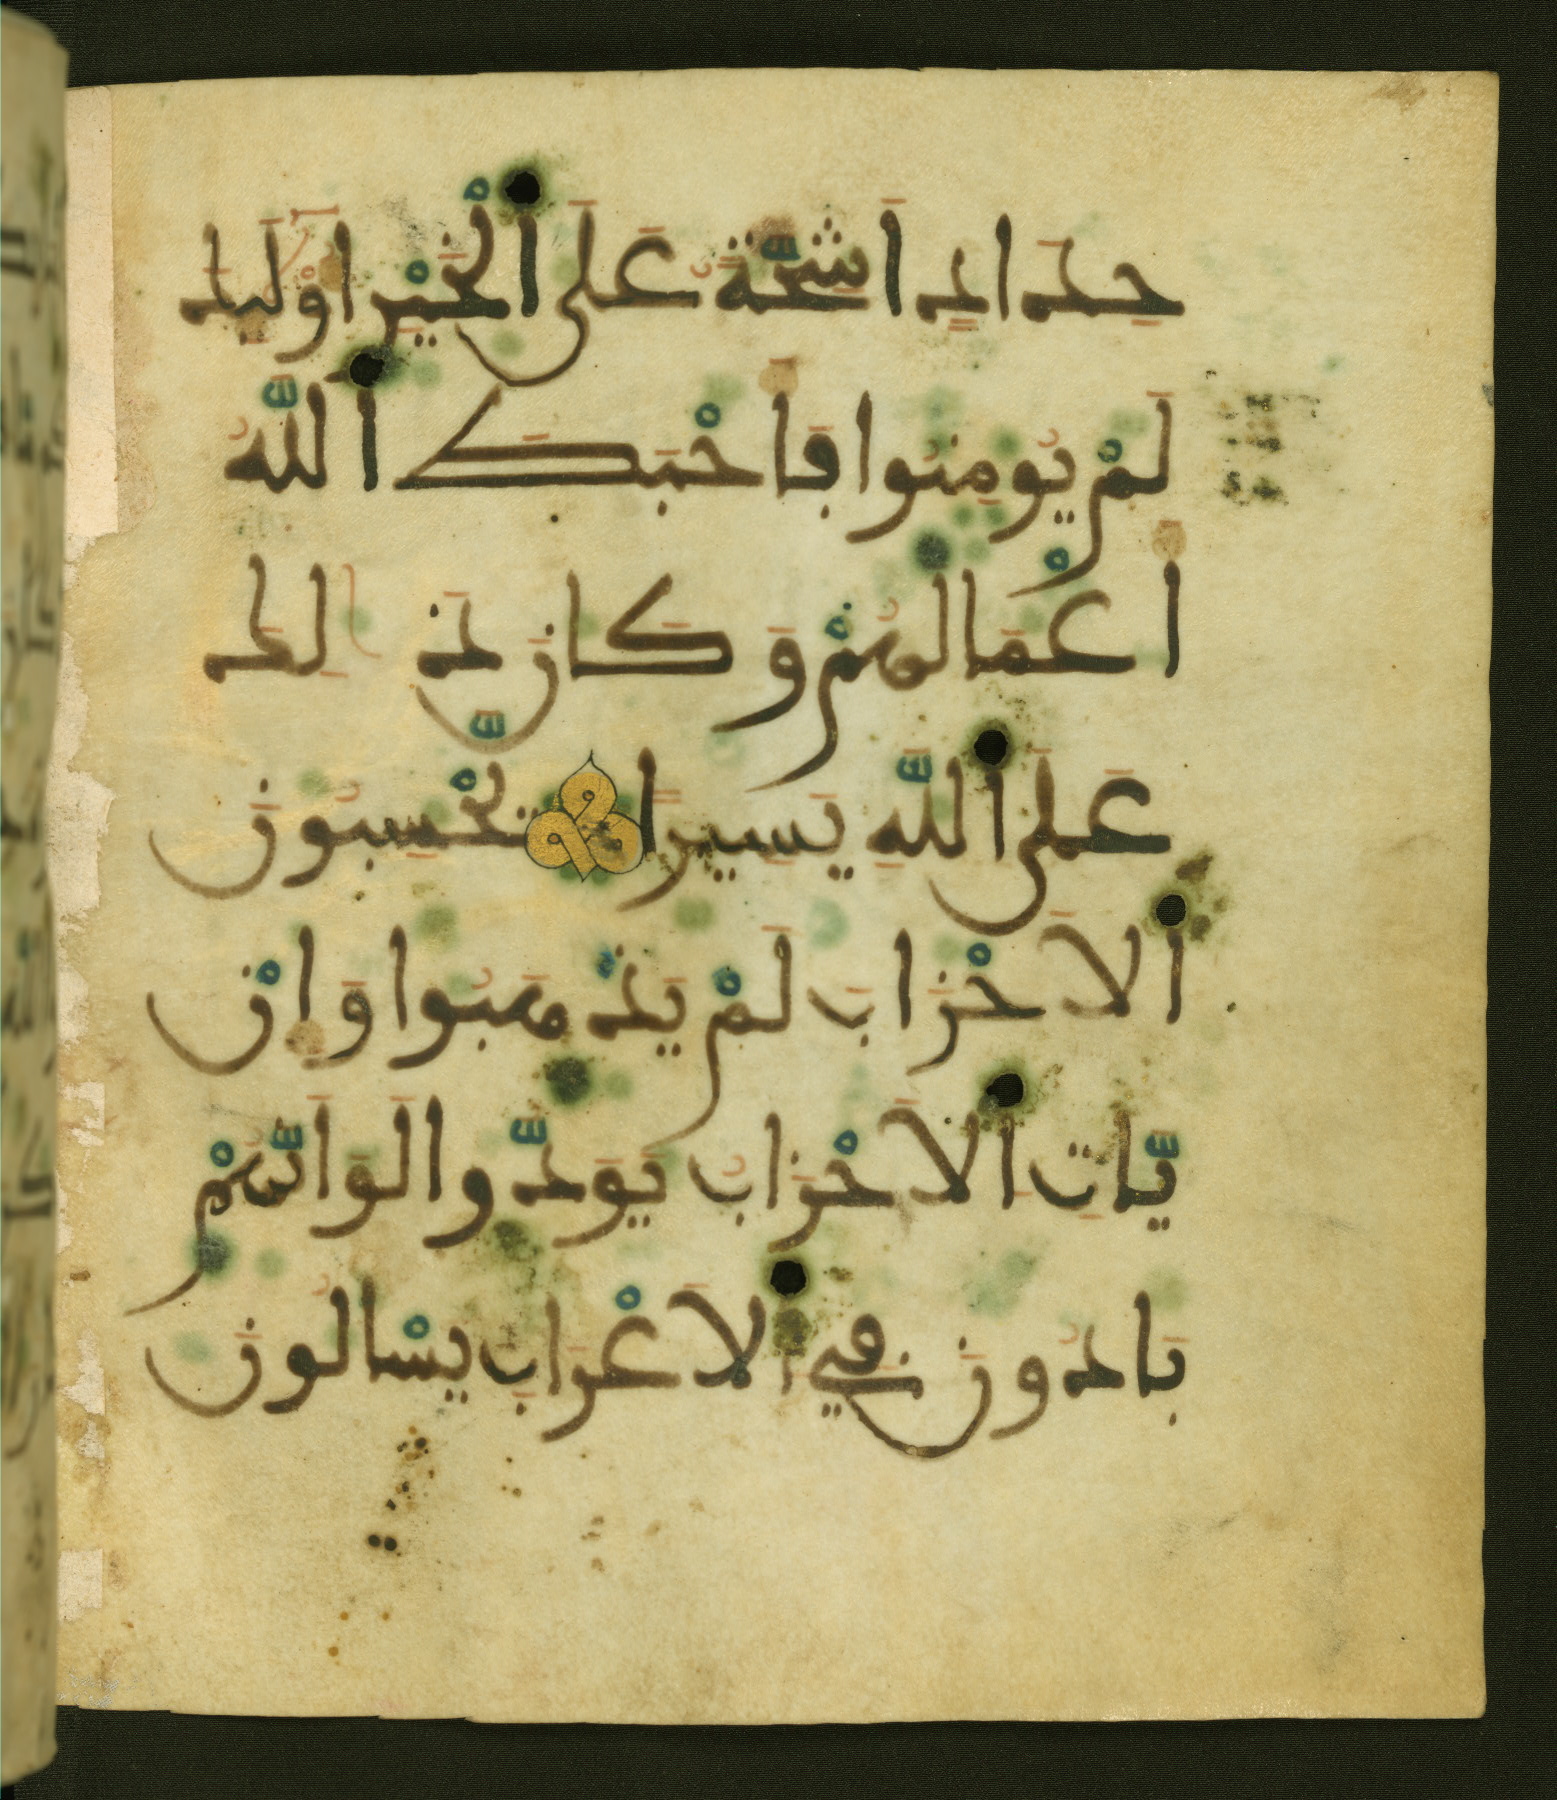 حِدَادٍ اَشِحَّةً عَلَى اَلْخَيْرِ اُوْلَٰٓئِكَ
لَمْ يُومِنُوا فَأَحْبَطَ اَللَّهُ
أَعْمَالَهُمْ وَكَانَ ذَٰلِكَ
عَلَى اَللَّهِ يَسِيراً يَحْسِبُونَ
اَلَاحْزَابَ لَمْ يَذْهَبُوا وَإِنْ
يَّاتِ اِلَاحْزَابُ يَوَدُّوا لَوَ اَنَّهُمْ
بَادُونَ فِي اِلَاعْرَابِ يَسْـَٔلُونَ